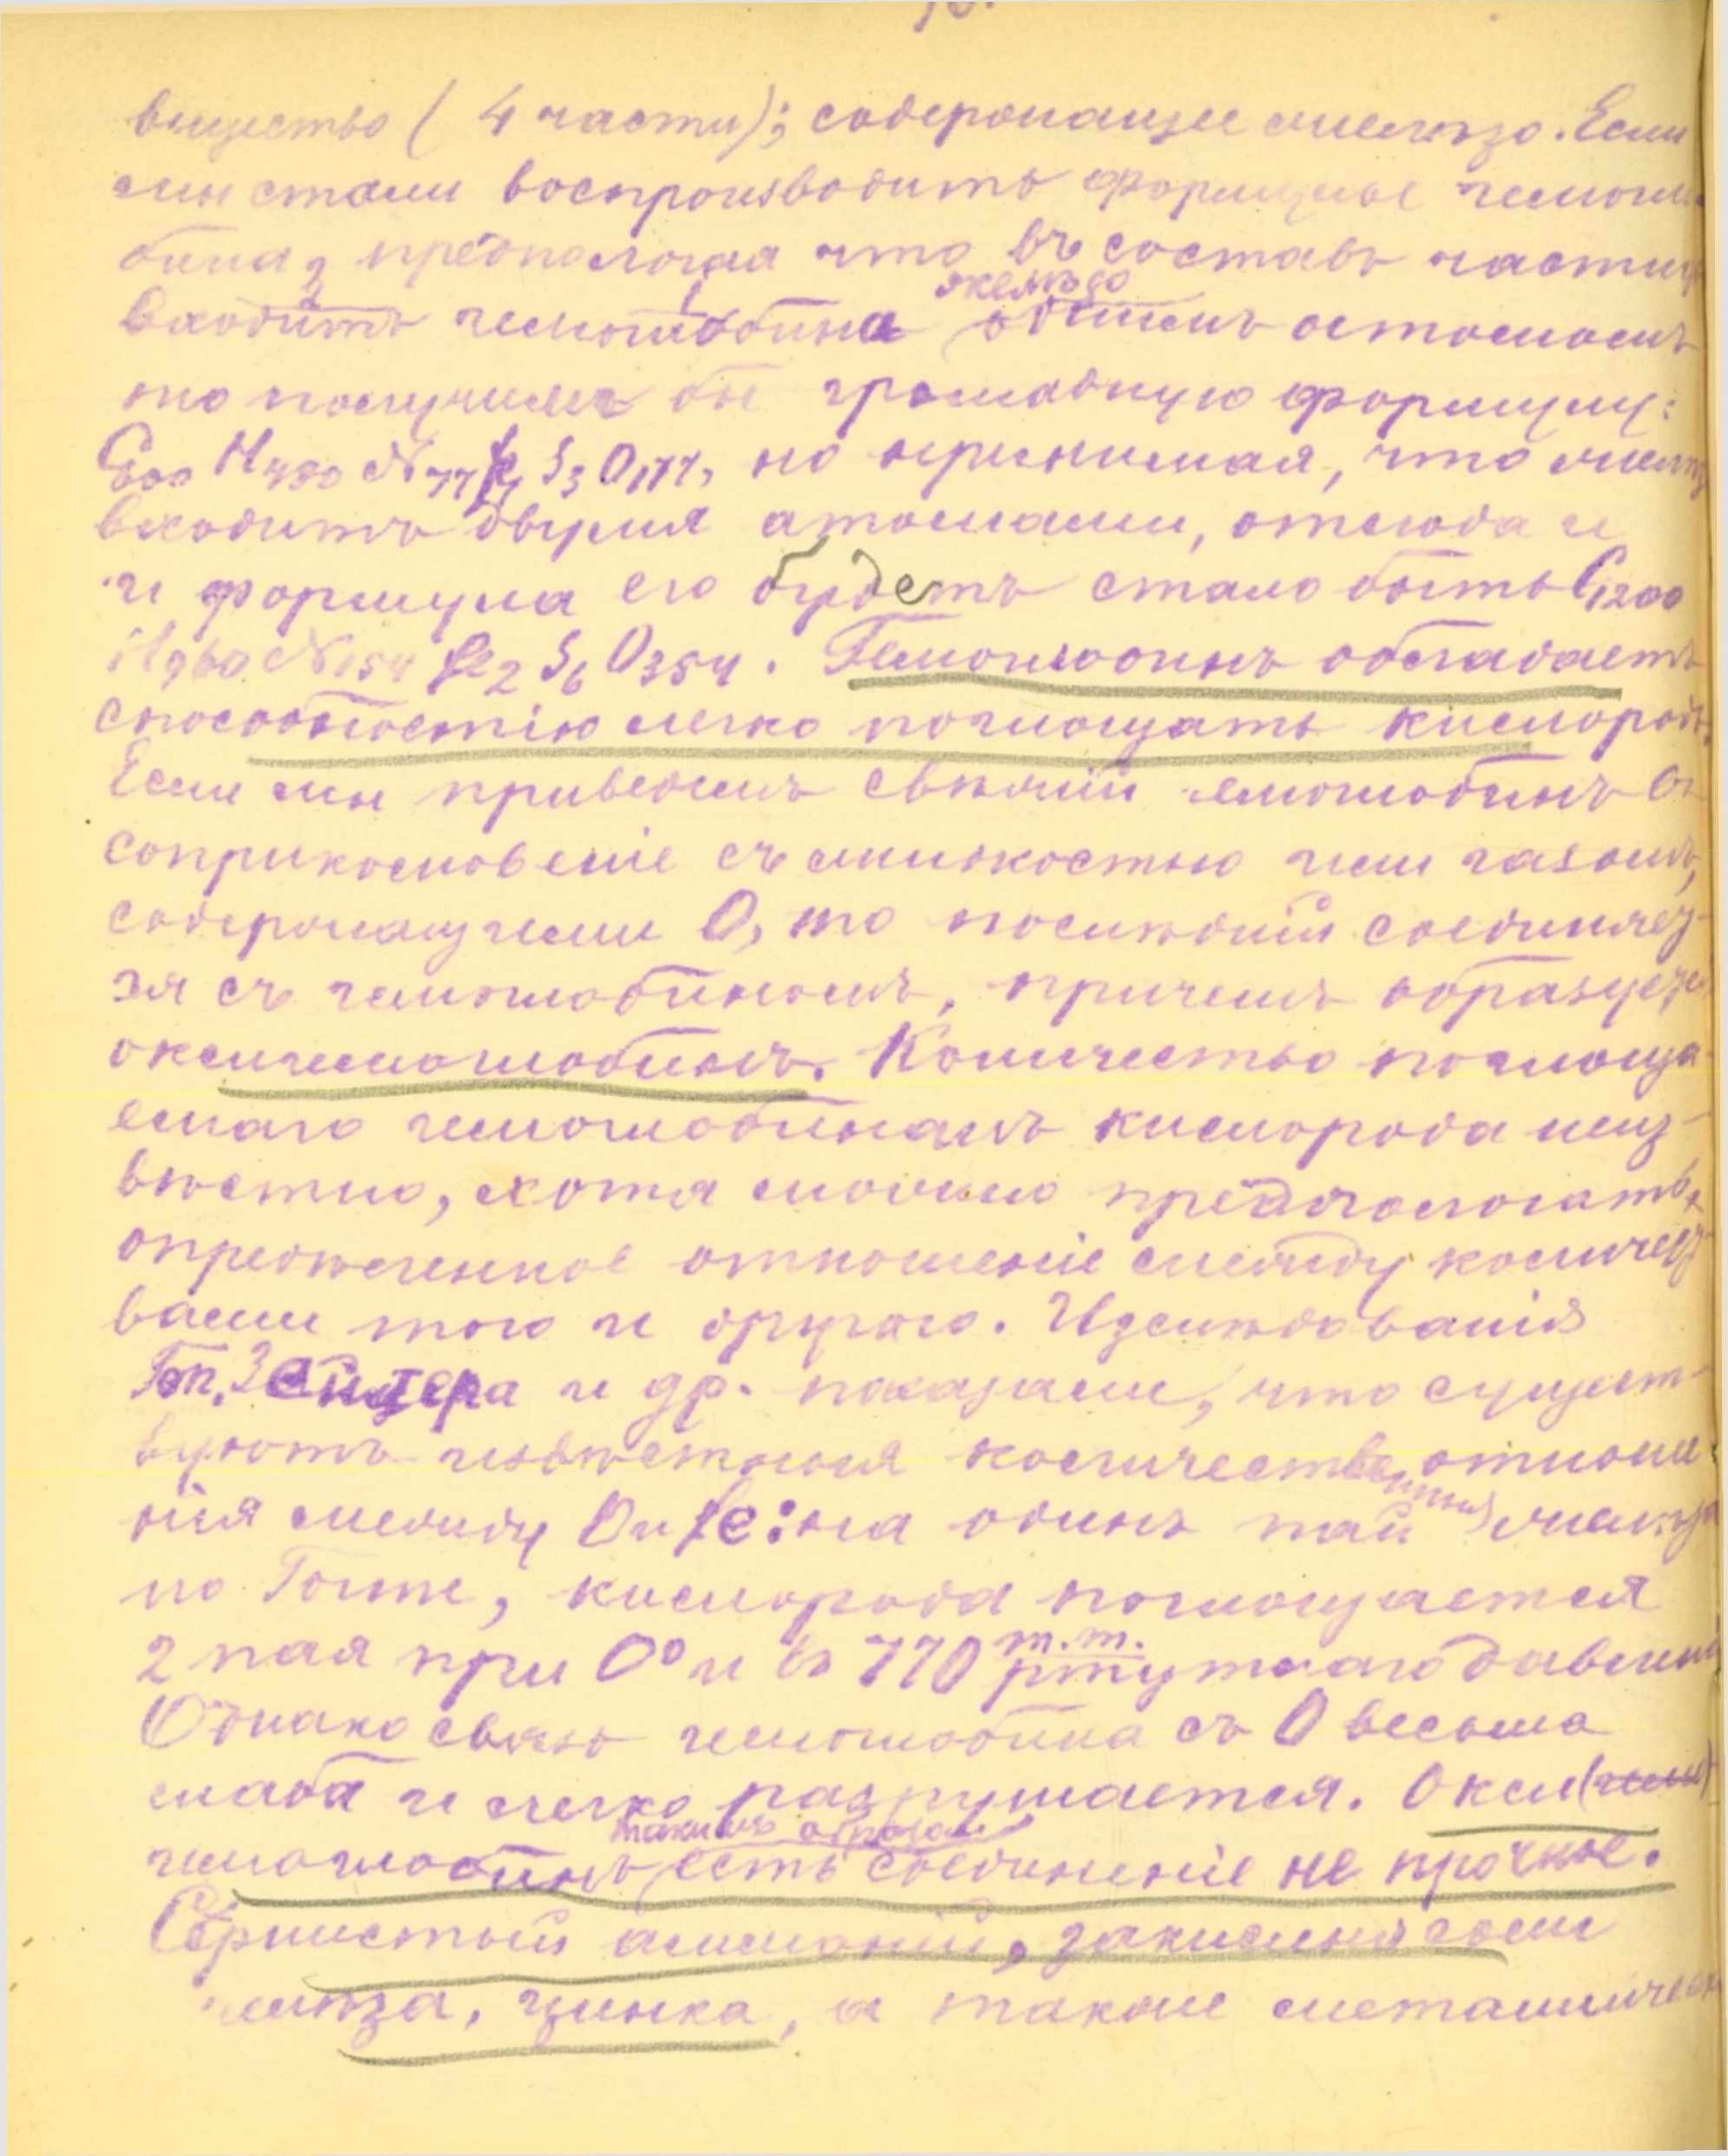 вещество (4 части); содержащее желѣзо. Если
мы стали воспроизводить формулы гемогло
бина, предполагая что въ составъ частицы
желѣзо
входитъ гемоглобина однимъ атомомъ
то получили бы громадную формулу:
C600 H480 N77 Fe1 S3 O177, но принимая, что желѣзо
входитъ двумя атомами, отсюда и
и формула его будетъ стало быть C1200
H960 N154 Fe2 S6 O354. Гемоглобинъ обладаетъ
способностію легко поглощать кислородъ.
Если мы приведемъ свѣжій гемоглобинъ въ
соприкосновеніе съ жидкостью или газомъ,
содержащими O, то послѣдній соединяет-
ся съ гемоглобиномъ, причемъ образуется
оксигемоглобинъ. Количество поглоща-
емаго гемоглобиномъ кислорода неиз-
вѣстно, хотя можно предполагать,
опредѣленное отношеніе между количест-
вами того и другого. Изслѣдованія
и др. показали, что сущест-
вуютъ извѣстныя количествен отноше-
ныя
нія между O и Fe: на одинъ пай желѣза
по Гопе, кислорода поглощается
m.m.
2 пая при 0° и въ 770 ртутнаго давленія
Однако связь гемоглобина съ O весьма
слаба и легко разрушается. Окси(гемо)-
такимъ образомъ
гемоглобинъ есть соединеніе не прочное.
Сѣрнистый аммоній, закисныя соли
желѣза, цинка, а также металлическ